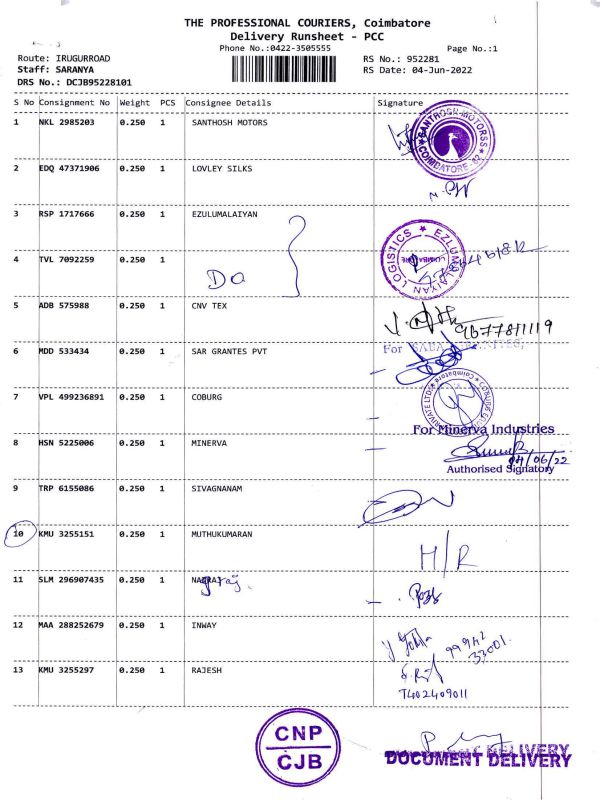 THE PROFESSIONAL COURIERS, Coimbatore
Delivery Runsheet - PCC
Phone No.:0422-3505555
Page No.:1
Route: IRUGURROAD
RS No.: 952281
Staff: SARANYA
RS Date: 04-Jun-2022
DRS No.: DCJB95228101
S No Consignment No Weight PCS Consignee Details Signature
1 NKL 2985203 0.250 1 SANTHOSH MOTORS
SANTHOSH MOTORSS
COIMBATORE - 62
2 EDQ 47371906 0.250 1 LOVLEY SILKS
3 RSP 1717666 0.250 1 EZULUMALAIYAN
EZLUMALAIYAN LOGISTICS
4 TVL 7092259 0.250 1
Do
5 ADB 575988 0.250 1 CNV TEX
9677811119
For
6 MDD 533434 0.250 1 SAR GRANTES PVT
7 VPL 499236891 0.250 1 COBURG
For Minerva Industries
8 HSN 5225006 0.250 1 MINERVA
04/06/22
Authorised Signatory
9 TRP 6155086 0.250 1 SIVAGNANAM
10 KMU 3255151 0.250 1 MUTHUKUMARAN
H/R
11 SLM 296907435 0.250 1
12 MAA 288252679 0.250 1 INWAY
99942
33001
13 KMU 3255297 0.250 1 RAJESH
T402409011
CNP
CJB
DOCUMENT DELIVERY